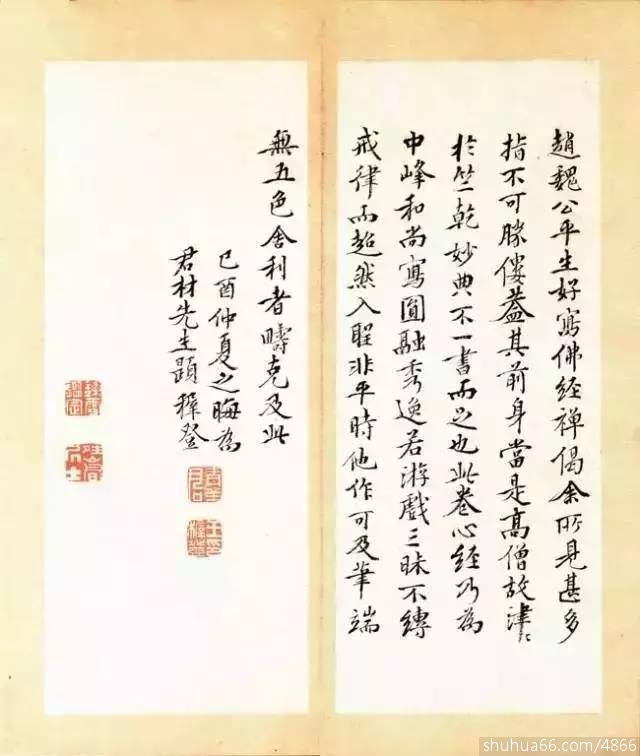 趙魏公平生好寫佛經禅偈余所見甚多
指不可勝僂蓋其前身當是高僧故津〻
於竺乾妙典不一書而足也此卷心經乃為
中峰和尚寫圓融秀逸若游戲三昧不縛
戒律而超然入聖非平時他作可及筆端
無五色舍利者疇克及此
己酉仲夏之晦為
君材先生題穉登
王穉登印
shuhua66.com/4866